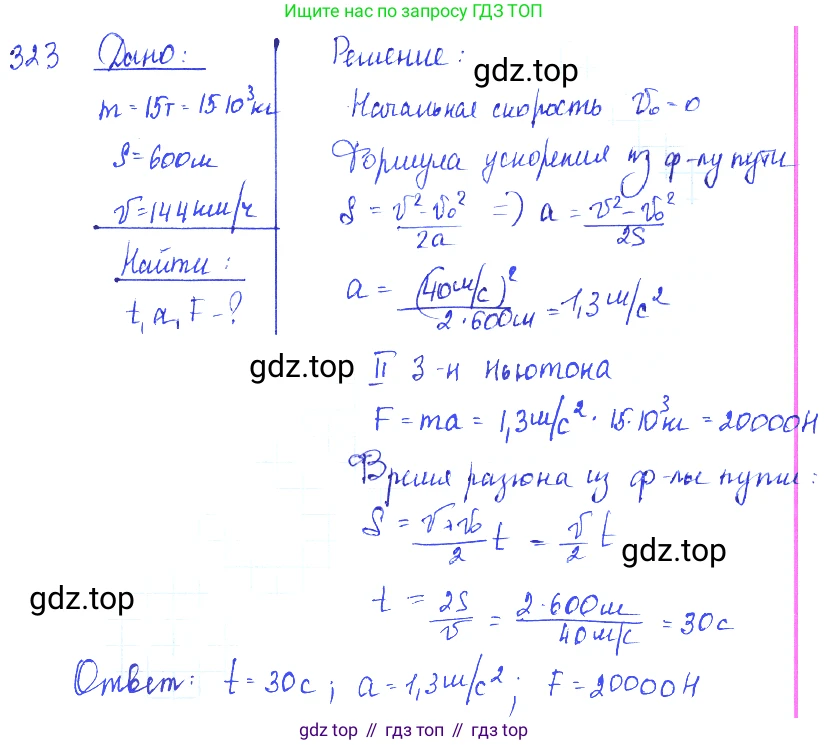 Ищите нас по запросу ГДЗ ТОП
323 Дано:
m = 15т = 15·10³кг
S = 600м
v = 144км/ч
Найти:
t, a, F - ?
Решение:
gdz.top
Начальная скорость v₀ = 0
Формула ускорения из ф-лу пути
S = (v² - v₀²)/2a => a = (v² - v₀²)/2S
a = (40м/с)²/2·600м = 1,3м/с²
gdz.top
II з-н Ньютона
F = ma = 1,3м/с² · 15·10³кг = 20000Н
Время разгона из ф-лы пути:
S = (v+v₀)/2 t = v/2 t
gdz.top
t = 2S/v = 2·600м/40м/с = 30с
gdz.top
Ответ: t = 30с; a = 1,3м/с²; F = 20000Н
gdz top // гдз топ // gdz.top